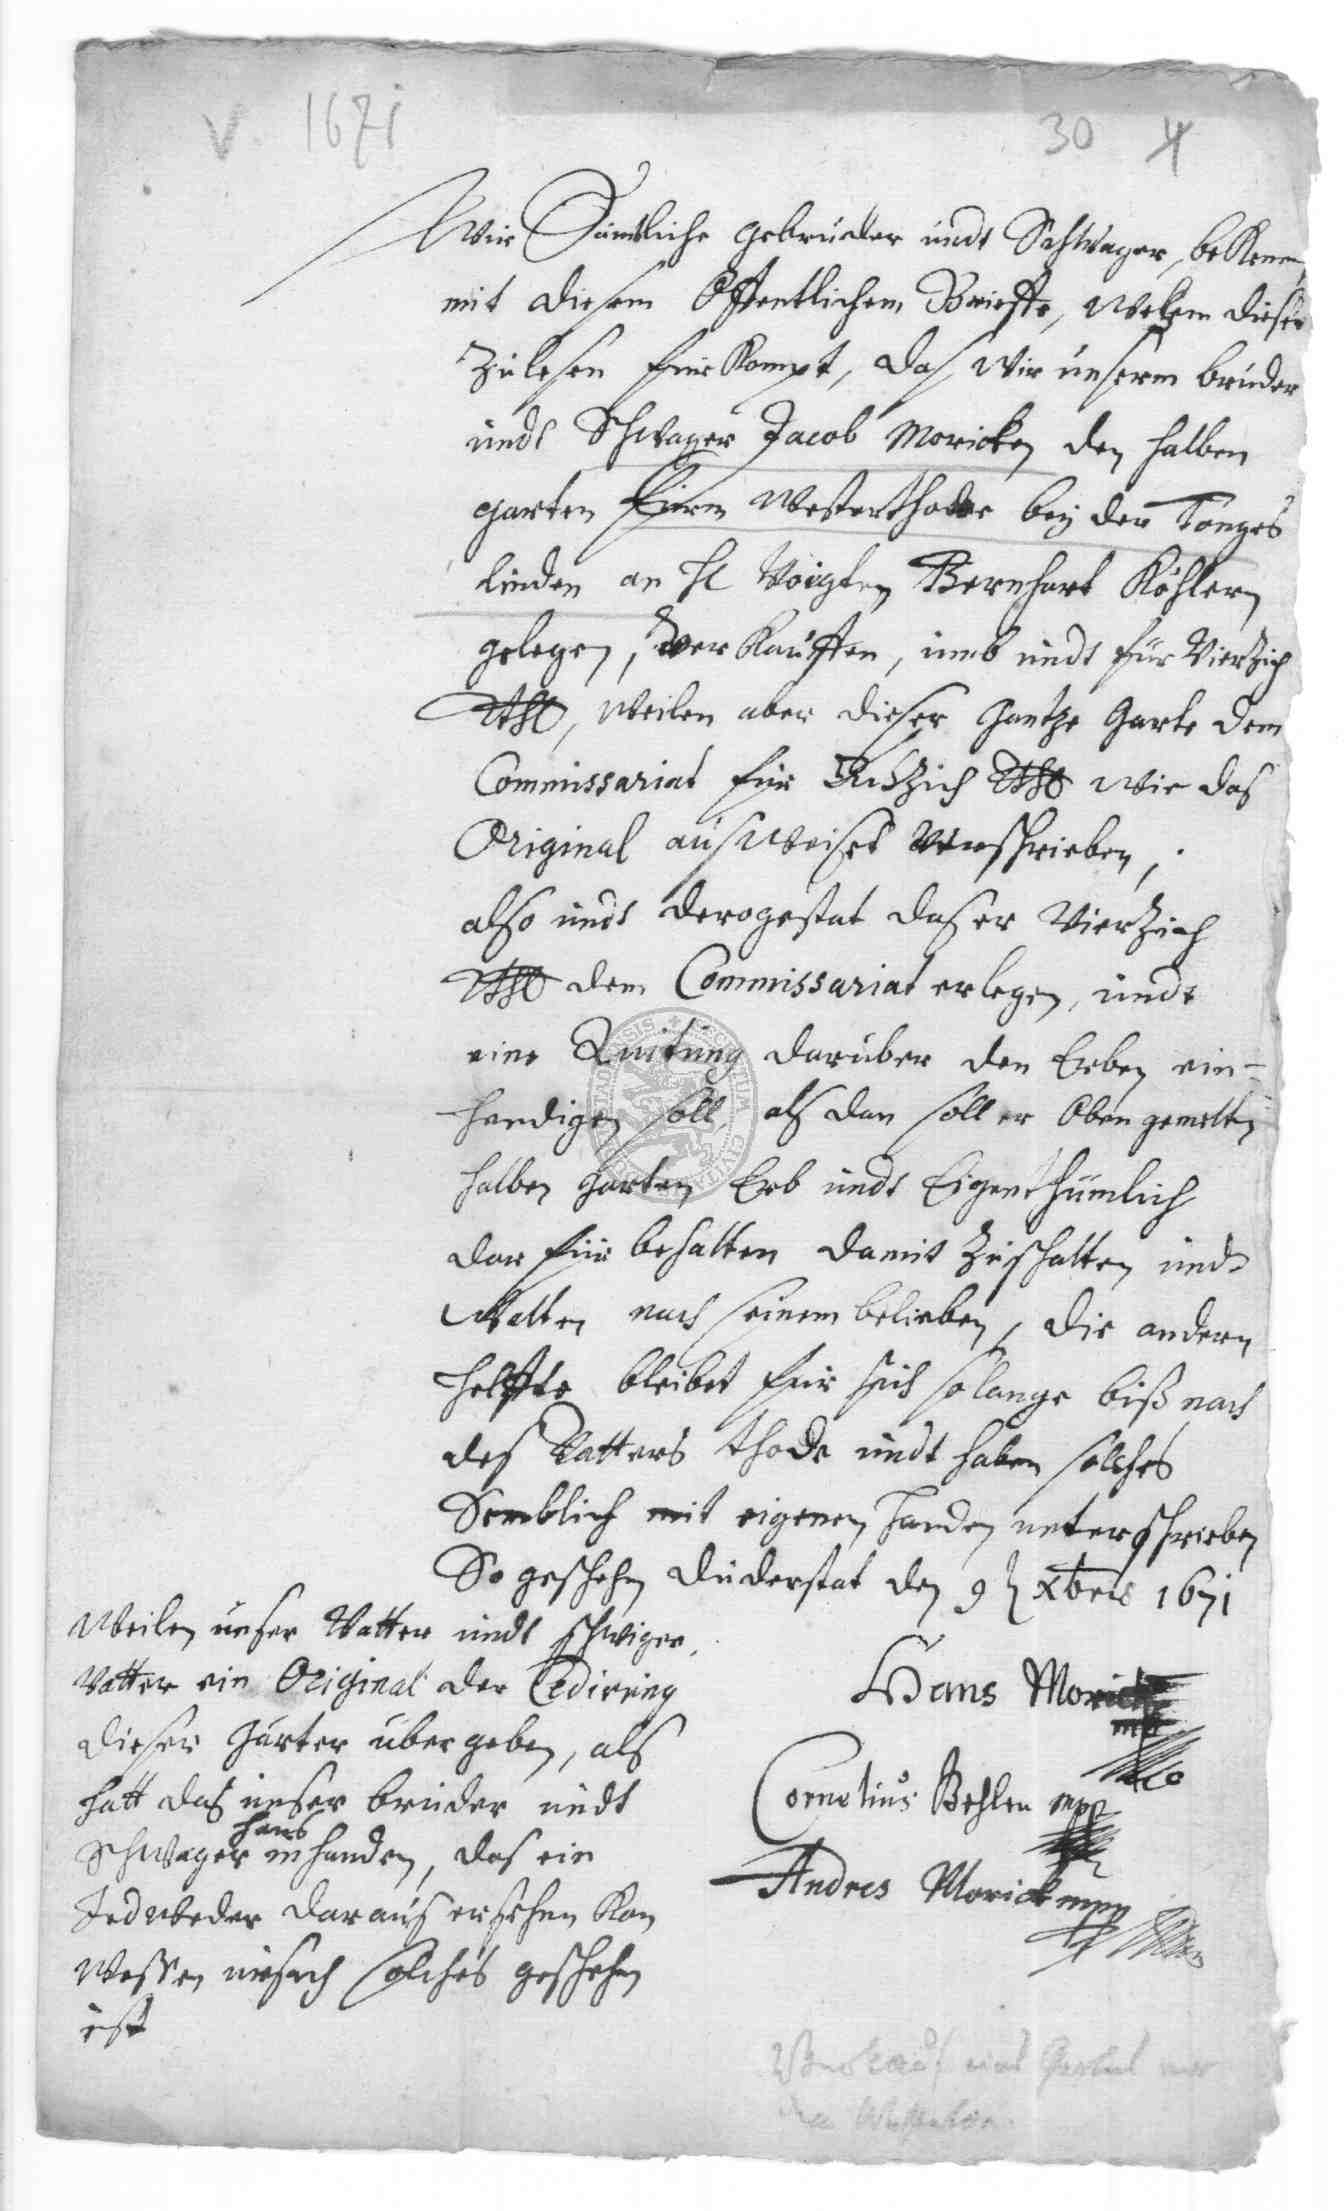 V 1671 30 4
Wir Sämbtliche gebrüder undt Schwager, beKenen
mit diesem Offentlichem Brieffe, Welchem dieser
Zulesen fürKompt, das Wir unserm bruder
undt Schwager Jacob Moricken den halben
garten fürm Westerthore bey der Tonges
linden an H Voigten Bernhart Köhlern
gelegen, VerKauffen, umb undt für VierZich
Rthl, Weilen aber dieser Gantze Garte dem
Commissariat für AchtZich Rthl wie das
Original ausWeiset Verschrieben,
also undt derogestat das er VierZich
Rthl dem Commissariat erlegen, undt
eine Quitung darüber den Erben ein-
hendigen soll, als dan soll er Obengemelten
halben Garten Erb undt Eigenthümlich
dar für behalten damit Zuschalten undt
Walten nach seinem belieben, die andern
helffte bleibet für sich solange biß nach
des Vatters thode undt haben solches
Semblich mit eigenen handen unterschrieben
So geschehen Duderstat den 9 Xbris 1671
Weilen unser Vatter undt schwiger
Vatter ein Original der Cedirung
dieser Garten übergeben, als
hatt das unser bruder undt
Schwager hans in handen, das ein
Jedweder daraus ersehen Kan
Wessen uhrsach solches geschehen
ist
Hans Morick
mp
Cornelius Behlen mp
Andres Morick mpp
Verkauf eines Gartens vor
dem Westerthor.